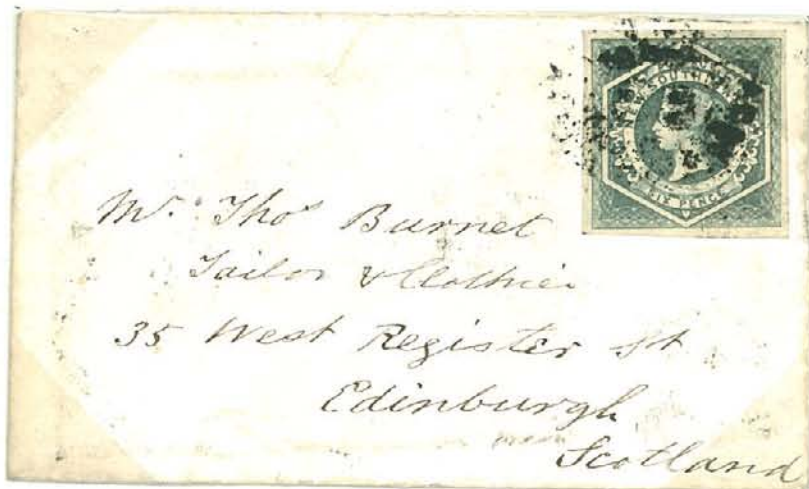 NEW SOUTH
SIX PENCE
Mr. Thos Burnet
Tailor & Clothier
35 West Register St
Edinburgh
Scotland